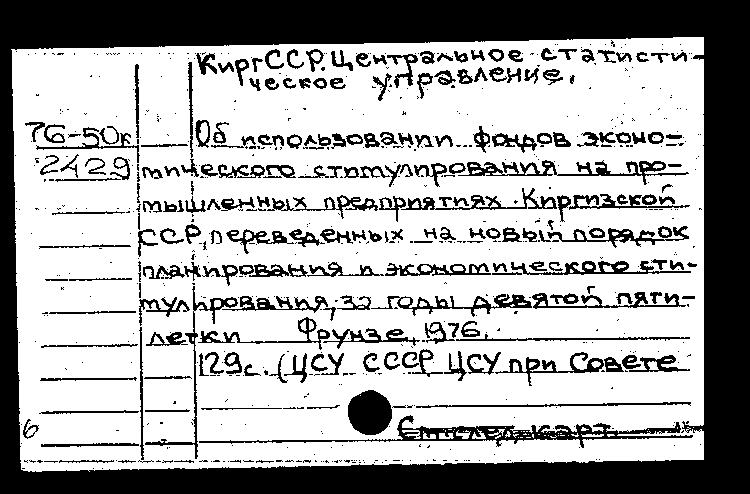 КиргССР. Центральное статисти-
ческое управление.
76-50к Об использовании фондов эконо-
2429 мического стимулирования на про-
мышленных предприятиях Киргизской
ССР, переведенных на новый порядок
планирования и экономического сти-
мулирования, за годы девятой пяти-
летки Фрунзе, 1976.
129с. (ЦСУ СССР ЦСУ при Совете
6 См. след. карт.